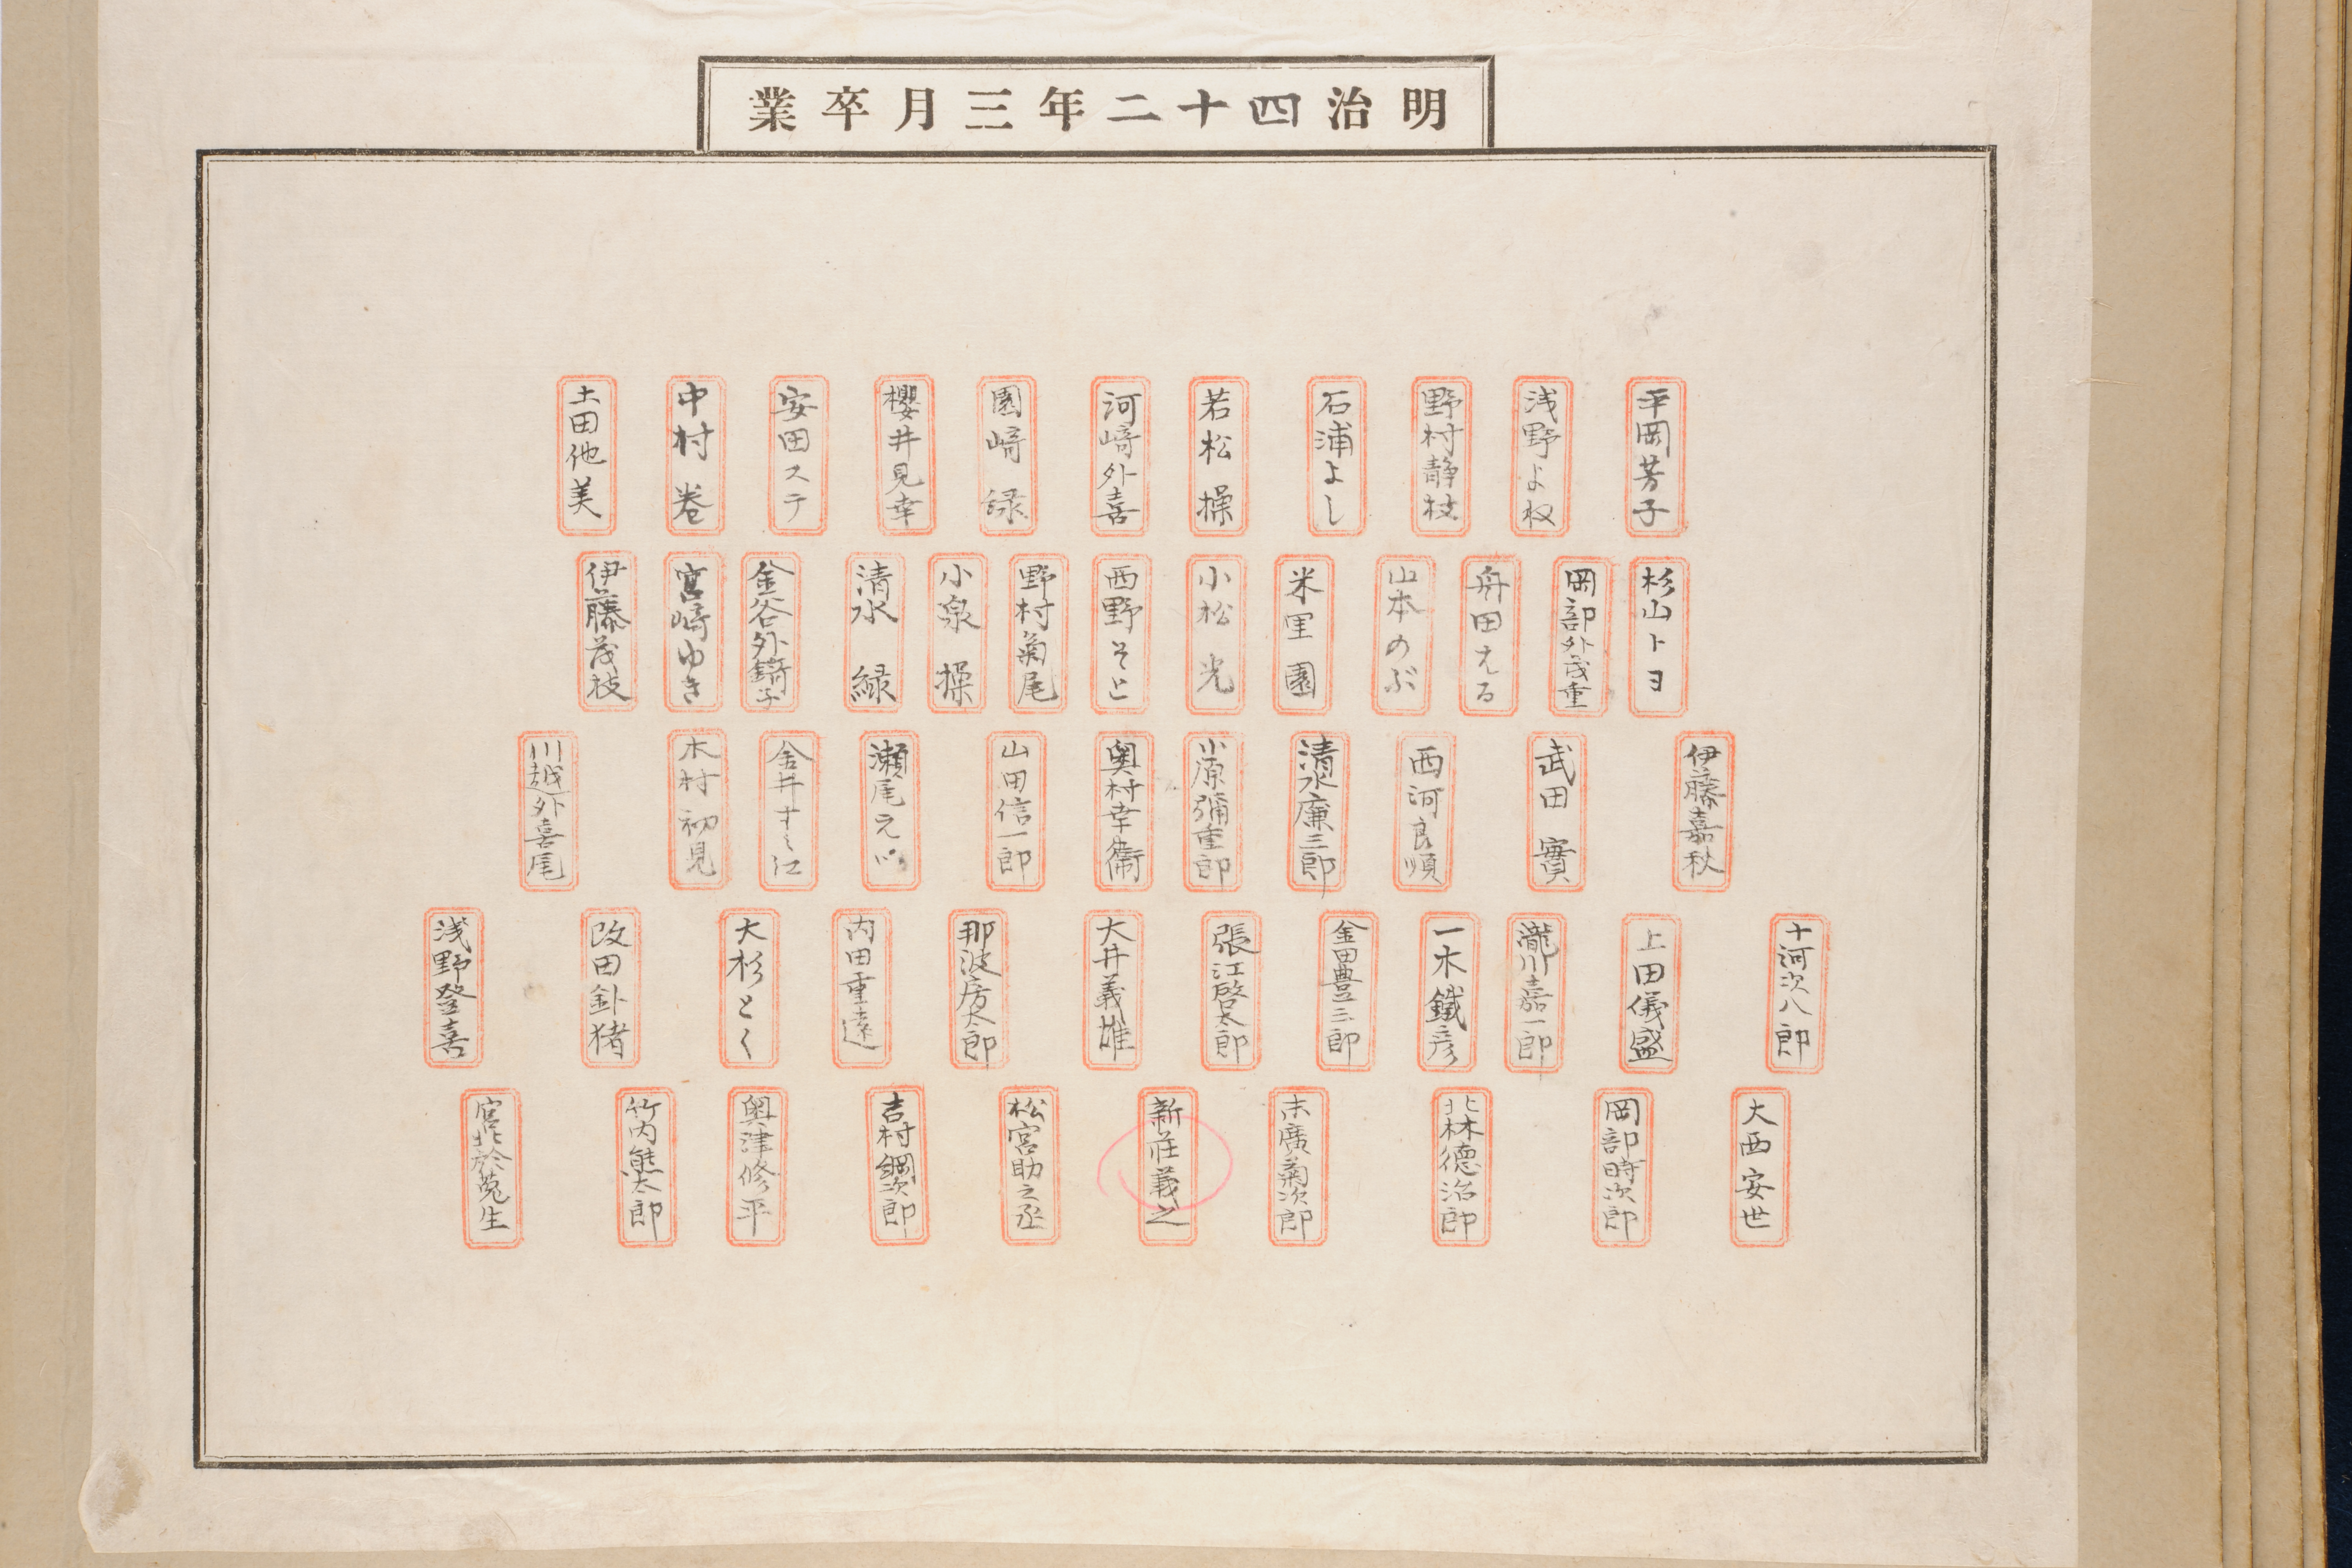 明治四十二年三月卒業
平岡芳子
浅野よ枝
野村静枝
石浦よし
若松操
河崎外喜
園崎緑
櫻井見幸
安田ステ
中村巻
土田他美
杉山トヨ
岡部外茂重
舟田える
山本のぶ
米里園
小松光
西野そと
野村菊尾
小泉操
清水緑
金谷外錡子
宮崎ゆき
伊藤茂枝
伊藤嘉秋
武田實
西河良順
清水廉三郎
小原彌重郎
奥村幸衛
山田信一郎
瀬尾え川
金井すゞ江
木村初見
川越外喜尾
十河次八郎
上田儀盛
瀧川嘉一郎
一木鐵彦
金田豊三郎
張江啓太郎
大井義雄
那波房太郎
内田重遠
大杉とく
改田釙猪
浅野登喜
大西安世
岡部時次郎
北林徳治郎
末廣菊次郎
新荘義之
松宮助之丞
吉村綱次郎
奥津修平
竹内熊太郎
宮北於菟生